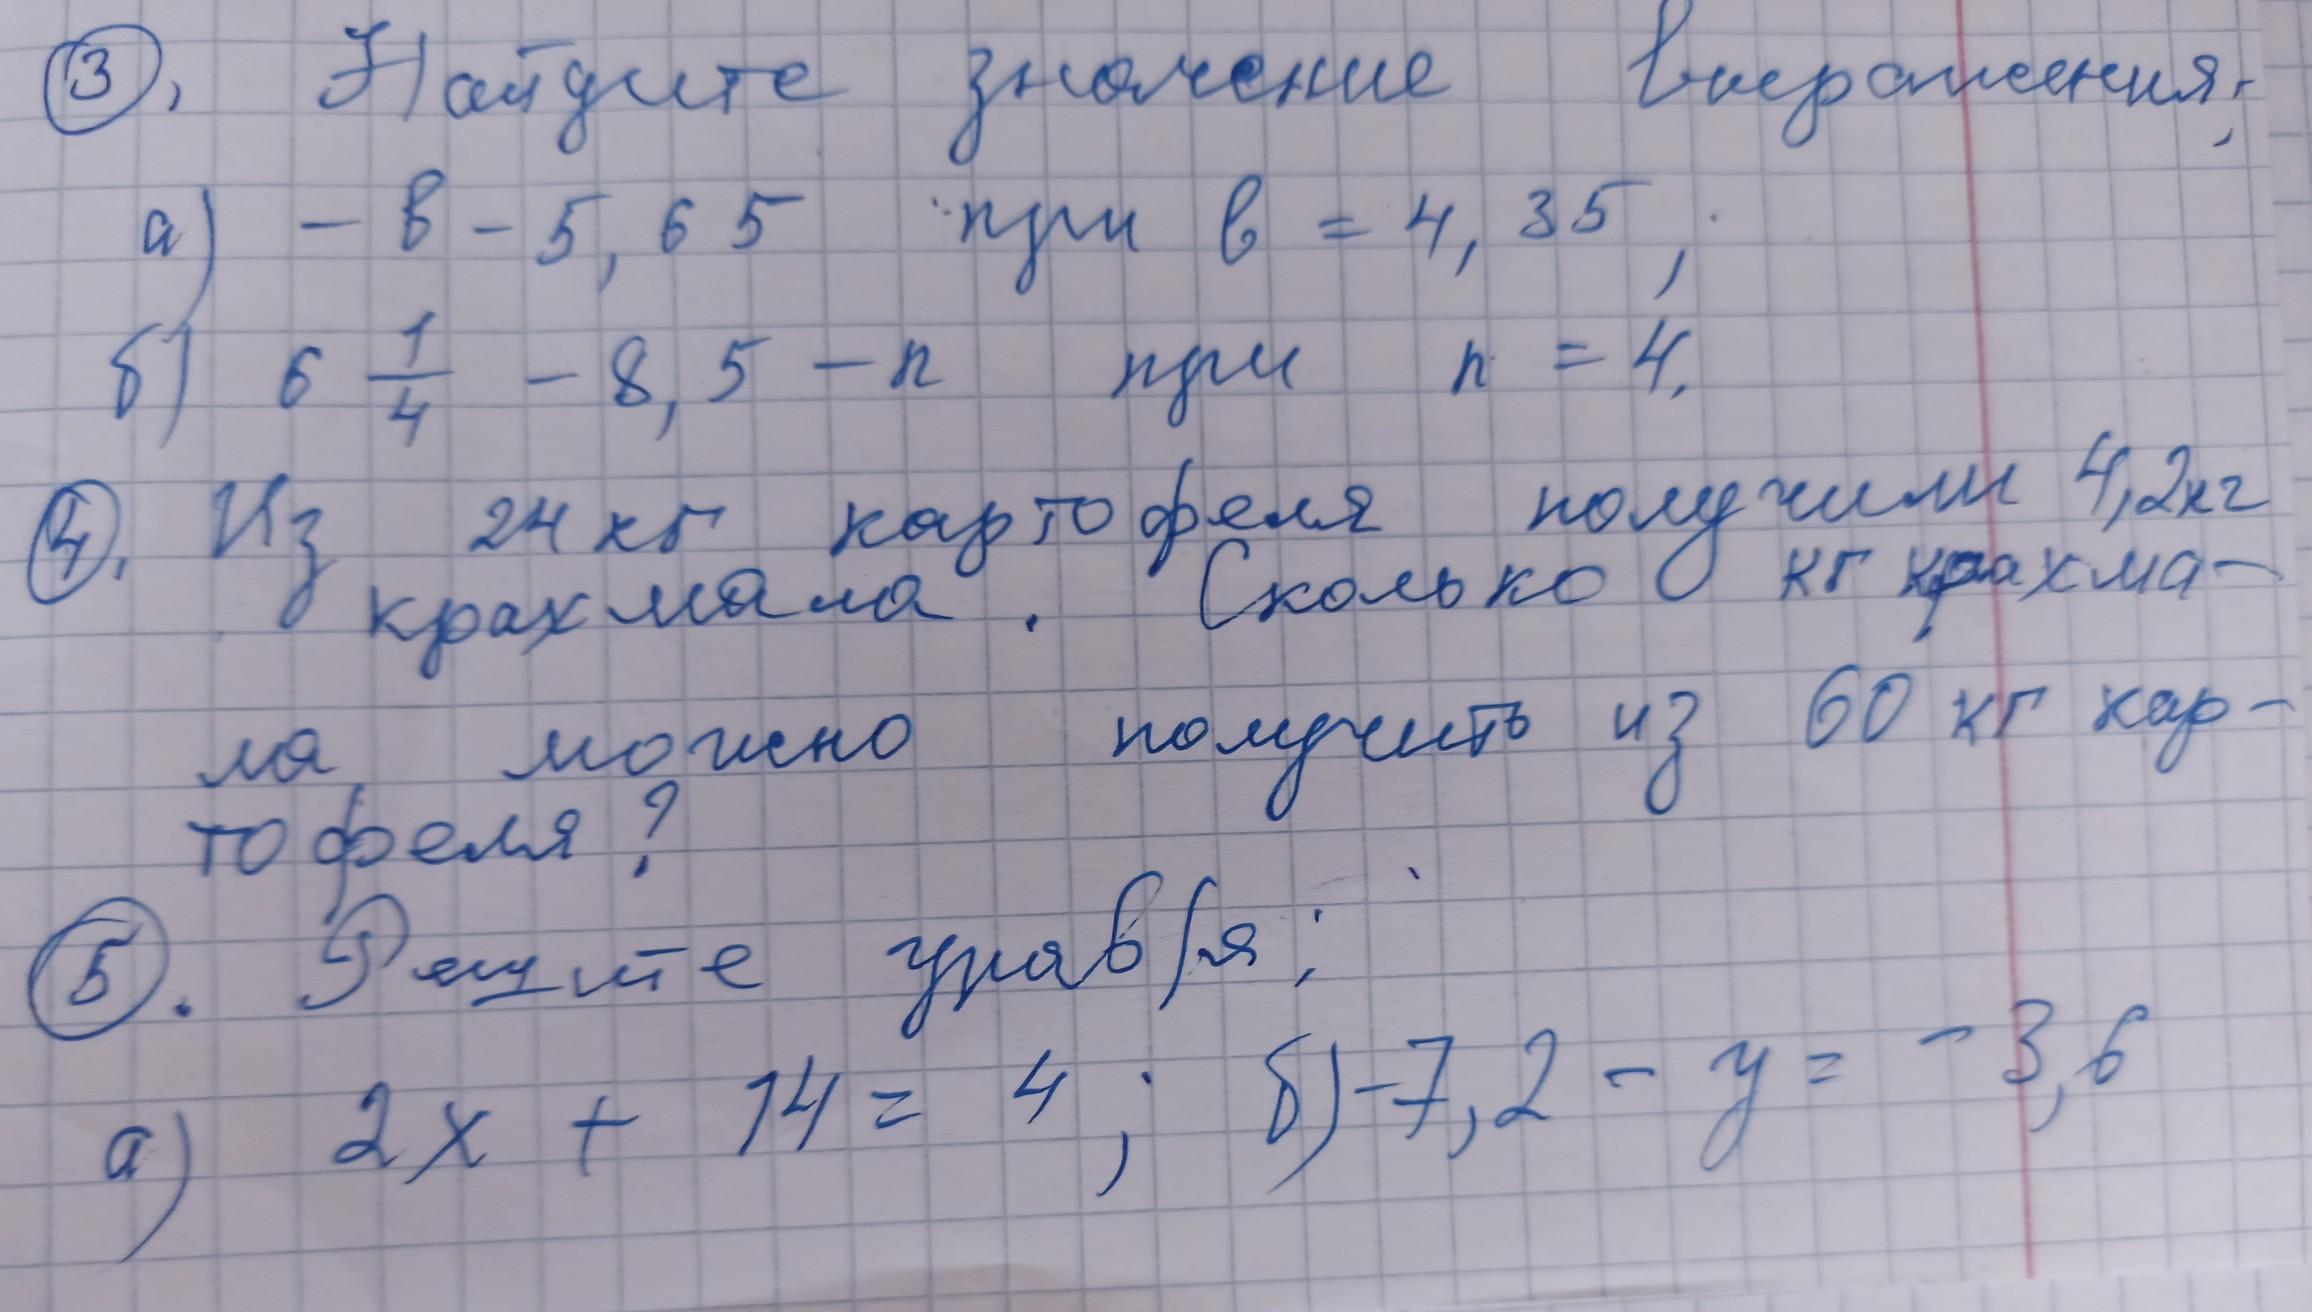 3. Найдите значение выражения:
а) - в - 5,65 при в = 4,35;
б) 6 1/4 - 8,5 - n при n = 4.
4. Из 24 кг картофеля получили 4,2 кг
крахмала. Сколько кг крахма-
ла можно получить из 60 кг кар-
тофеля?
5. Решите уравн/я:
а) 2x + 14 = 4; б) -7,2 - y = -3,6